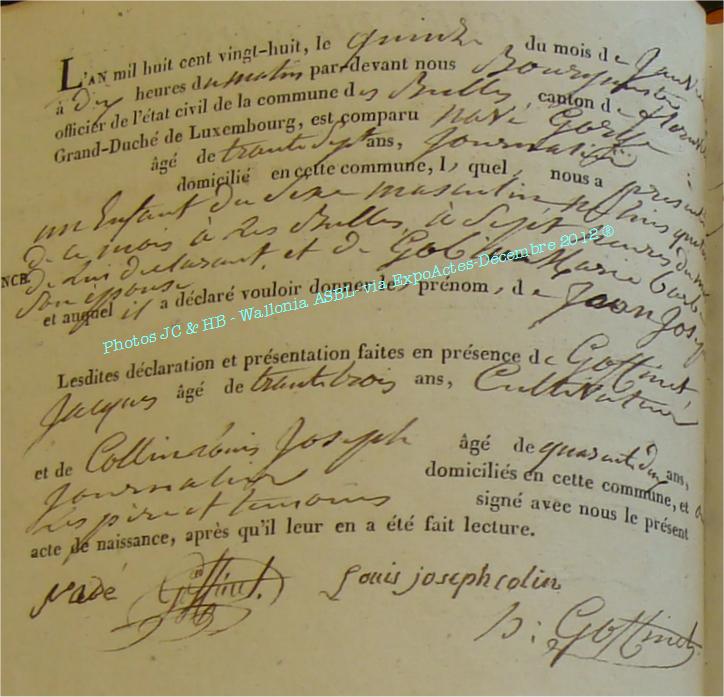 L'AN mil huit cent vingt-huit, le quinze du mois de Janvier
à dix heures du matin par-devant nous Bourguemestre
officier de l'état civil de la commune des Bulles, canton de
Grand-Duché de Luxembourg, est comparu
âgé de trente Sept ans, Journalier
domicilié en cette commune, l quel, nous a présenté
un Enfant du Sexe masculin
de ce mois à Les Bulles, à Sept heures du
de Lui déclarant et de Marie Barbe
NCE.
Son épouse
et auquel il a déclaré vouloir donner les prénom, de Jean Joseph
Photos JC & HB - Wallonia ASBL- via ExpoActes-Décembre 2012 ®
Lesdites déclaration et présentation faites en présence de Goffinet
Jacques âgé de trente trois ans, Cultivateur
et de Collin Louis Joseph âgé de quarante ans,
Journalier domiciliés en cette commune, et
Les père et temoins signé avec nous le présent
acte de naissance, après qu'il leur en a été fait lecture.
Goffinet. Louis joseph colin
Goffinet